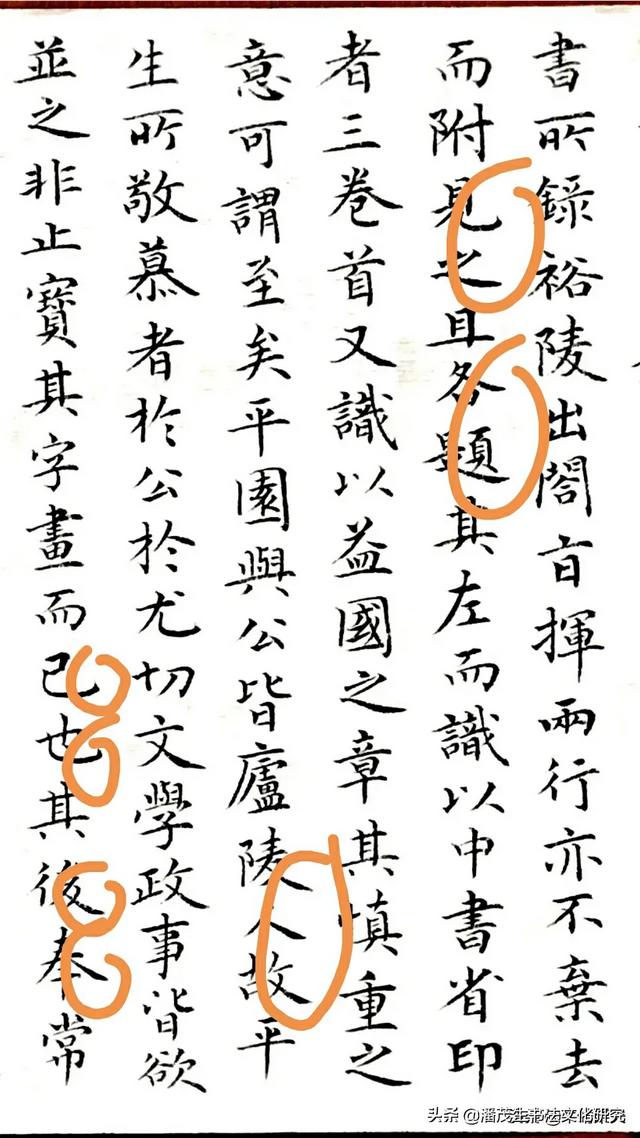 書所錄裕陵出閤旨揮兩行亦不棄去
而附見之且各題其左而識以中書省印
者三卷首又識以益國之章其慎重之
意可謂至矣平園與公皆廬陵人故平
生所敬慕者於公於尤切文學政事皆欲
並之非止寶其字畫而已也其後奉常
头条 @潘茂生书法文化研究